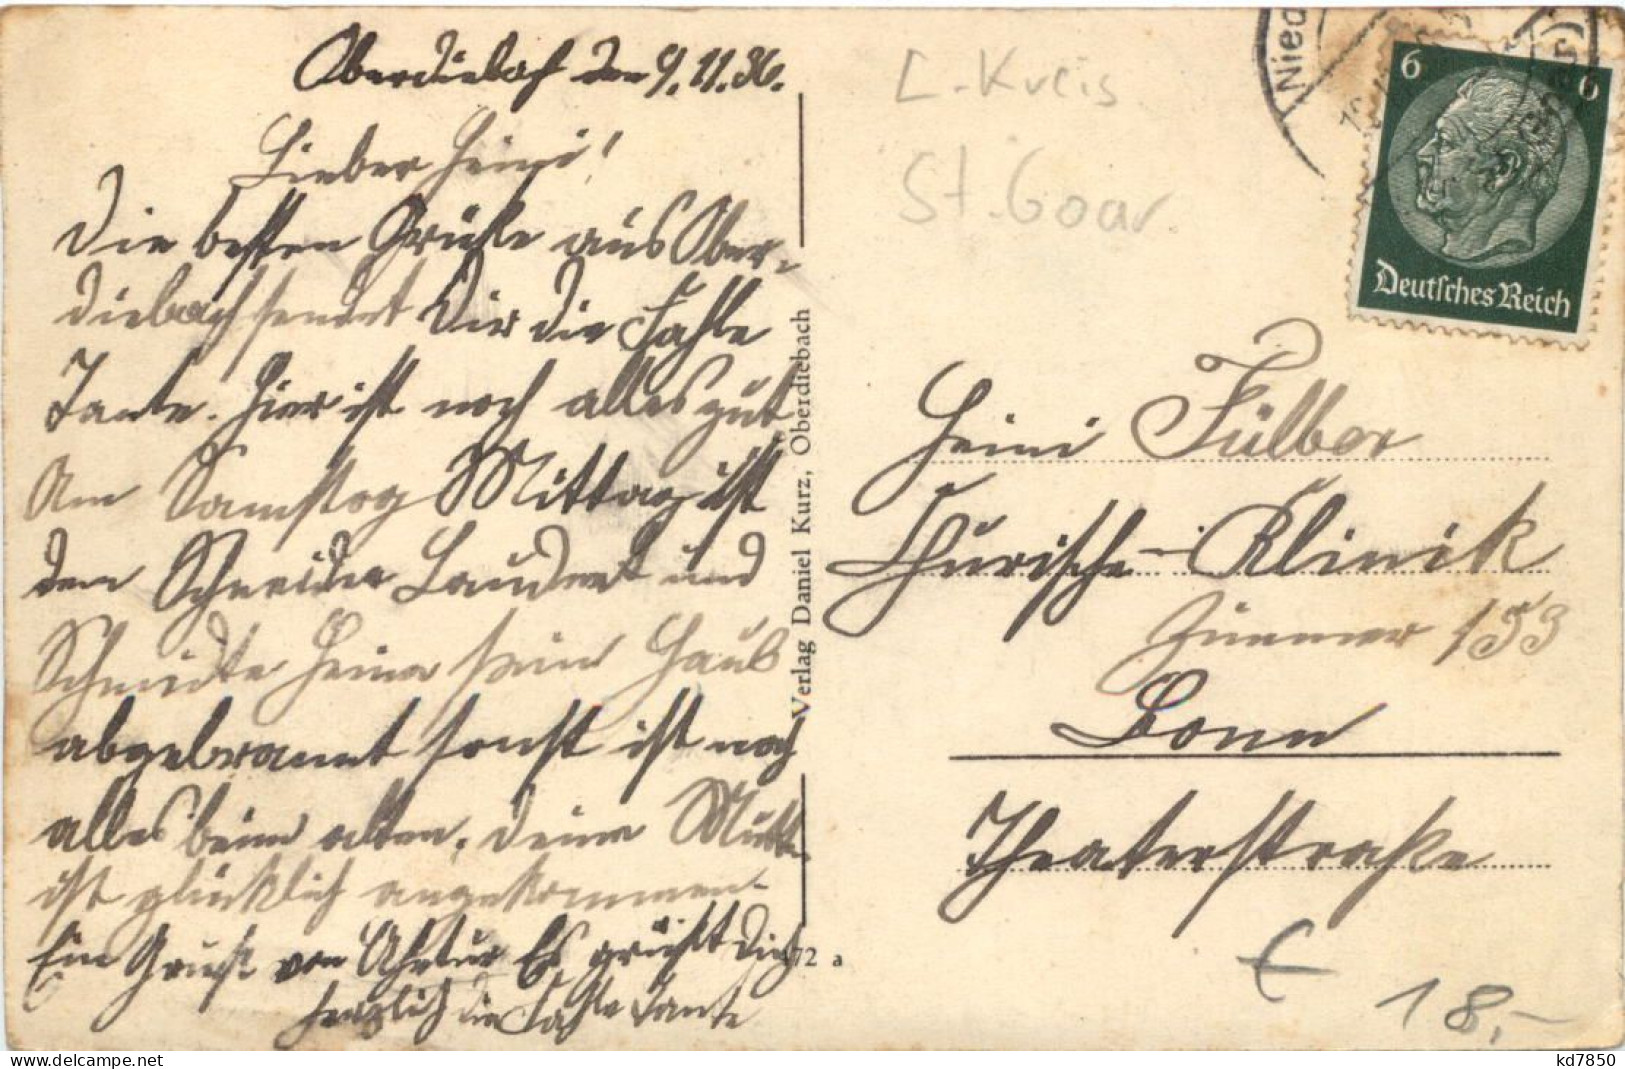 Oberdiebach den 9.11.36.
Lieber Heini!
Die besten Grüße aus Ober-
diebach sendet Dir die
Tante. Hier ist noch alles gut
Am Samstag Mittag ist
dem Schneider und
Schmidte Heina sein Haus
abgebrannt sonst ist noch
alles beim alten. Deine Mutter
ist glücklich angekommen.
Ein Gruß von Es grüßt Dich
herzlich die Tante
Verlag Daniel Kurz, Oberdiebach
72 a
L.-Kreis
St. Goar
Nied
6 6
Deutsches Reich
Heini Fülber
Chirische-Klinik
Zimmer 153
Bonn
Theaterstraße
€
18,-
kd7850